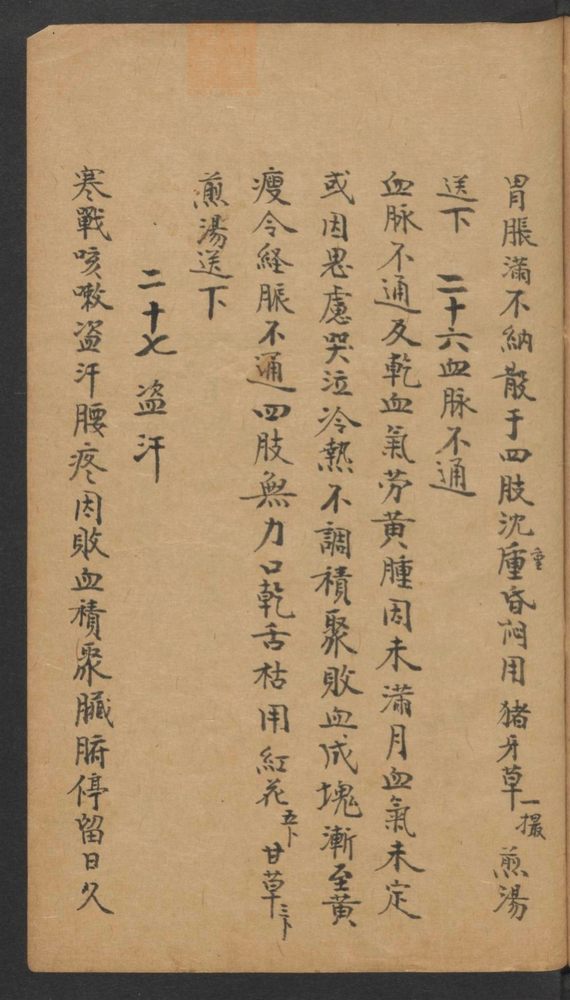 胃脹滿不納散于四肢沈重昏悶用猪牙草一撮煎湯
送下 二十六血脉不通
血脉不通及乾血氣劳黄腫因未满月血氣未定
或因思慮哭泣冷熱不調積聚敗血成塊漸至黄
瘦令経脈不通四肢無力口乾舌枯用紅花五卜甘草三卜
煎湯送下
二十七 盗汗
寒戰咳嗽盗汗腰疼因敗血積聚臟腑停留日久